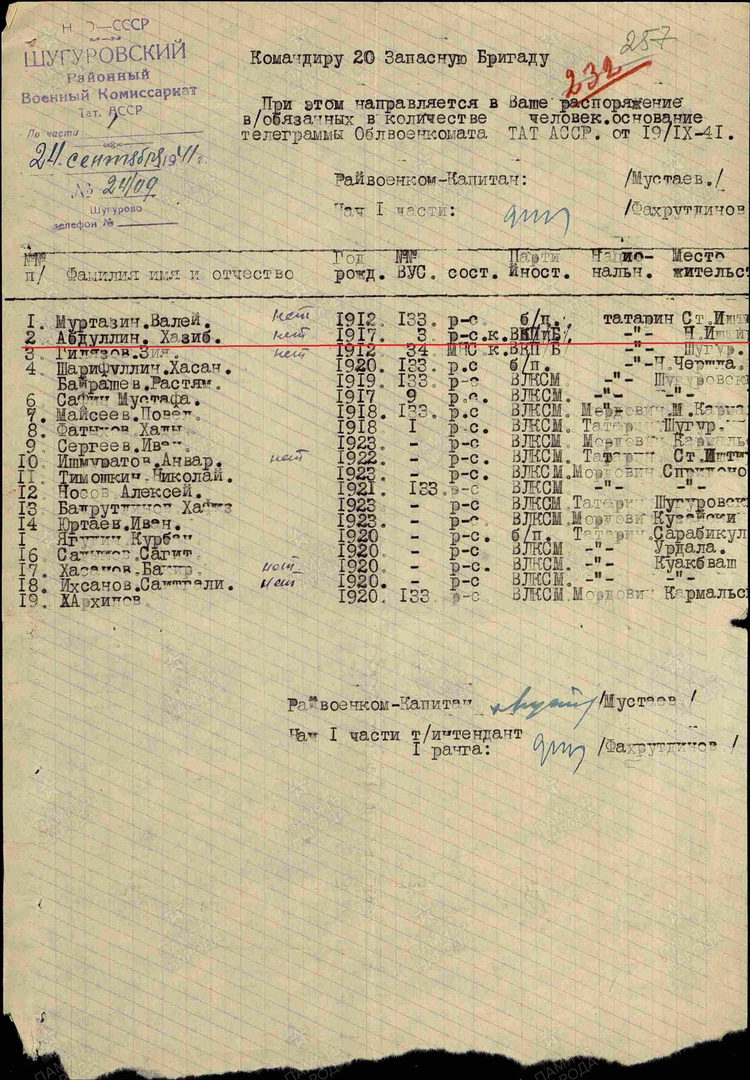 НКО—СССР
ШУГУРОВСКИЙ
Районный
Военный Комиссариат
Тат. АССР
По части
24 сентября 1941 г.
№ 24/09
Шугурово
телефон №
257
232
Командиру 20 Запасную Бригаду
При этом направляется в Ваше распоряжение
в/обязанных в количестве человек.основание
телеграммы Облвоенкомата ТАТ АССР. от 19/IX-41.
Райвоенком-Капитан: /Мустаев./
Нач I части: /Фахрутдинов
№№ Год №№ Парти Нацио- Место
п/ Фамилия имя и отчество рожд. ВУС. сост. йност. нальн. жительст
1. Муртазин.Валей. нет 1912. 133. р-с. б/п. татарин Ст.Ишти
2 Абдуллин. Хазиб. нет 1917. 3 р-с.к.ВКП/Б/ -"- Н.Ишти
3 Гилязов.Зия. нет 1912 34 МНС к.ВКП/Б -"- Шугур.
4 Шарифуллин.Хасан. 1920. 133. р-с б/п. -"- Н.Чершла.
Байрашев.Растям. 1919. 133 р-с ВЛКСМ -"- Шугуровски
6 Сафин Мустафа. 1917 9 р.с. ВЛКСМ. -"- -"-
7. Майсеев.Повел. 1918. 133. р.с ВЛКСМ. Мордович.М.Кармал
8. Хады. 1918 I р-с ВЛКСМ. Татарин Шугур.
9 Сергеев.Иван. 1923 - р-с ВЛКСМ Мордович Кармальс
10 Ишмуратов.Анвар. нет 1922. - р-с. ВЛКСМ. Татарин Ст.Ишти
11 Тимошкин Николай. 1923. - р-с. ВЛКСМ.Мордович
12 Носов Алексей. 1921. 133. р-с ВЛКСМ -"- -"-
13 Бадрутдинов Хафиз 1923 - р-с ВЛКСМ Татарин Шугуровск
14 Юртаев.Иван. 1923. - р-с. ВЛКСМ.Мордович
1 Ягудин Курбан 1920 - р-с. б/п. Татарин.Сарабикул
16 Сагит. 1920 - р-с ВЛКСМ -"- Урдала.
17. Хасанов.Бакир. нет 1920 - р-с ВЛКСМ. -"- Куакбваш
18. Ихсанов.Саитгали. нет 1920. - р-с ВЛКСМ. -"- -"-
19. ХАрхипов 1920. 133 р-с ВЛКСМ.Мордович Кармальс
Райвоенком-Капитан /Мустаев /
Нач I части т/интендант
I ранга: /Фахрутдинов /
ПАМЯТЬ
НАРОДА